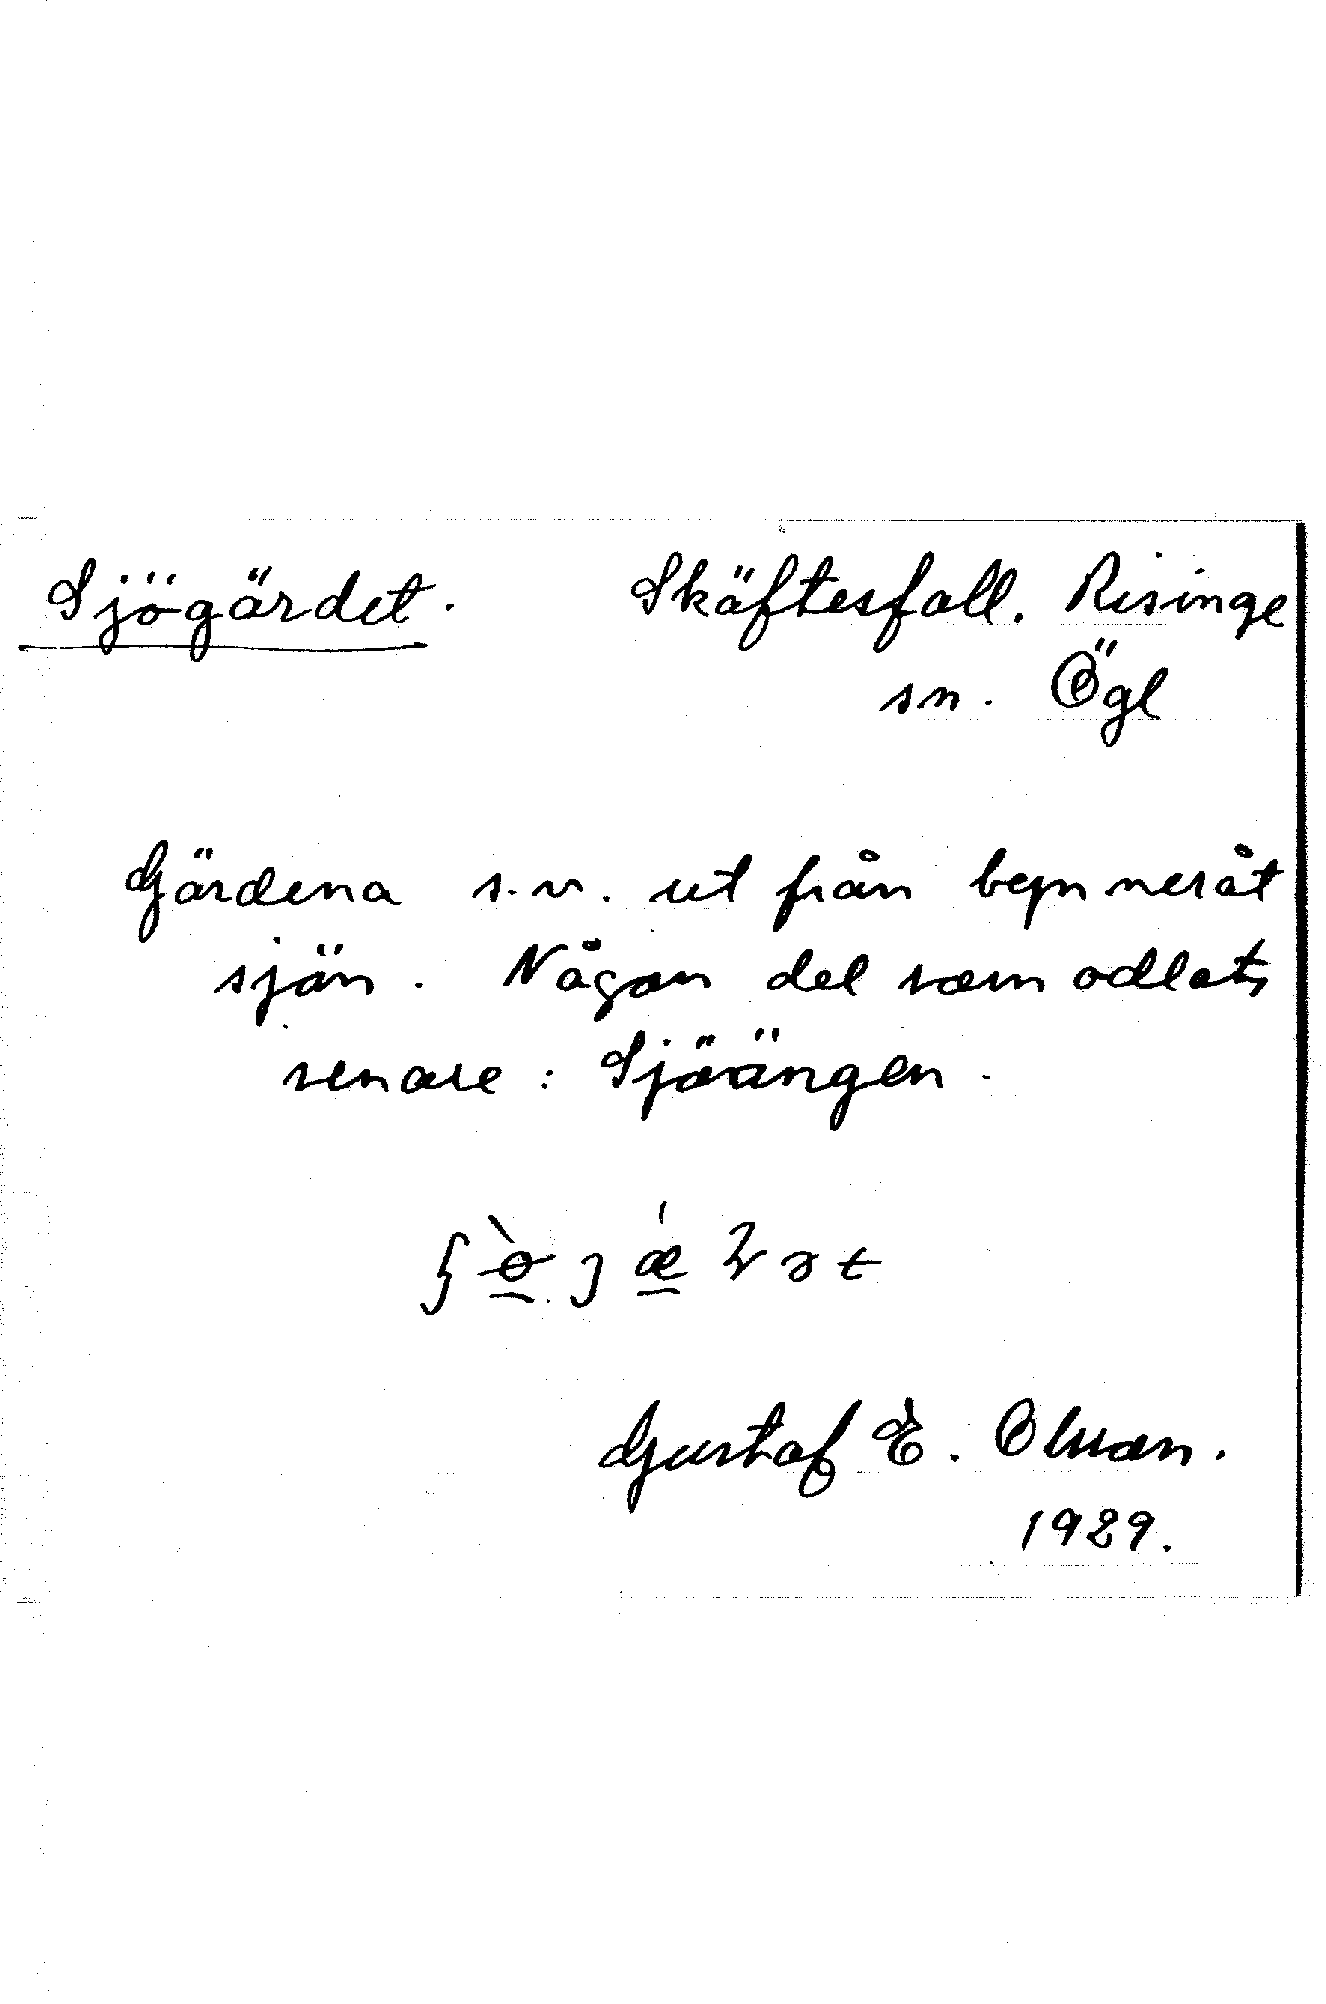 Sjögärdet. Skäftesfall. Risinge
sn. Ögl
Gärdena s.v. ut från bygn neråt
sjön. Någon del som odlats
senare: Sjöängen.
Gustaf E. Olsson.
1929.